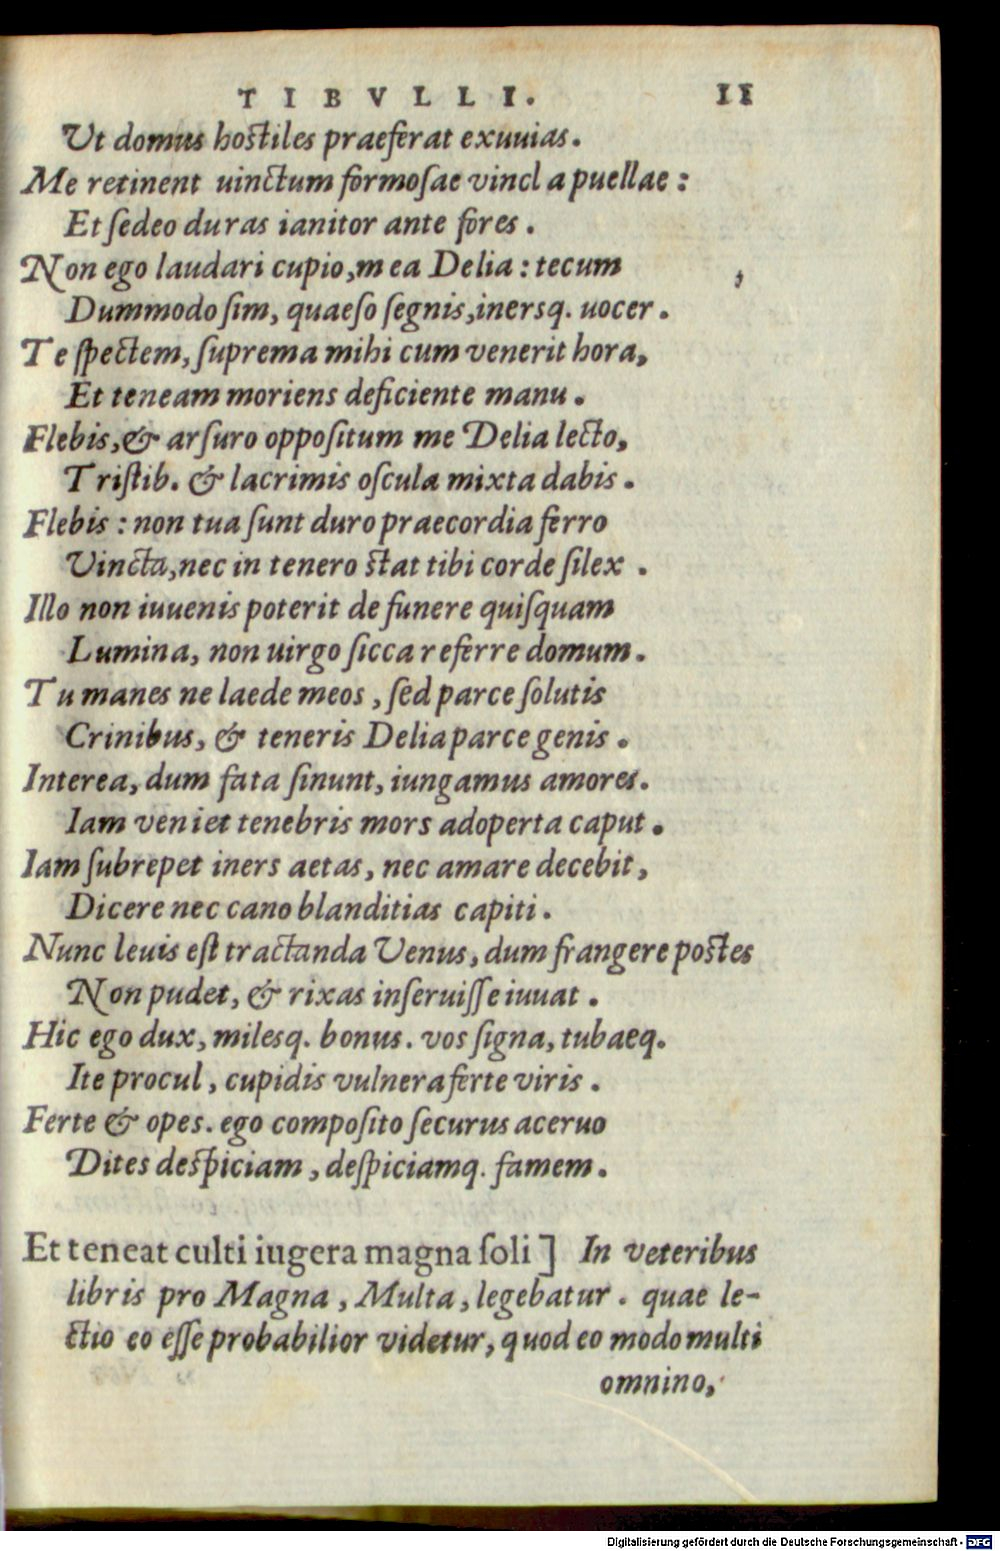 TIBVLLI. 11
Ut domus hostiles praeferat exuuias.
Me retinent uinctum formosae vincla puellae:
Et sedeo duras ianitor ante fores.
Non ego laudari cupio, mea Delia: tecum
Dummodo sim, quaeso segnis, inersq. uocer.
Te spectem, suprema mihi cum venerit hora,
Et teneam moriens deficiente manu.
Flebis, & arsuro oppositum me Delia lecto,
Tristib. & lacrimis oscula mixta dabis.
Flebis: non tua sunt duro praecordia ferro
Vincta, nec in tenero stat tibi corde silex.
Illo non iuuenis poterit de funere quisquam
Lumina, non uirgo sicca referre domum.
Tu manes ne laede meos, sed parce solutis
Crinibus, & teneris Delia parce genis.
Interea, dum fata sinunt, iungamus amores.
Iam veniet tenebris mors adoperta caput.
Iam subrepet iners aetas, nec amare decebit,
Dicere nec cano blanditias capiti.
Nunc leuis est tractanda Venus, dum frangere postes
Non pudet, & rixas inseruisse iuuat.
Hic ego dux, milesq. bonus. vos signa, tubaeq.
Ite procul, cupidis vulnera ferte viris.
Ferte & opes. ego composito securus aceruo
Dites despiciam, despiciamq. famem.
Et teneat culti iugera magna soli] In veteribus
libris pro Magna, Multa, legebatur. quae le-
ctio eo esse probabilior videtur, quod eo modo multi
omnino,
Digitalisierung gefördert durch die Deutsche Forschungsgemeinschaft - DFG